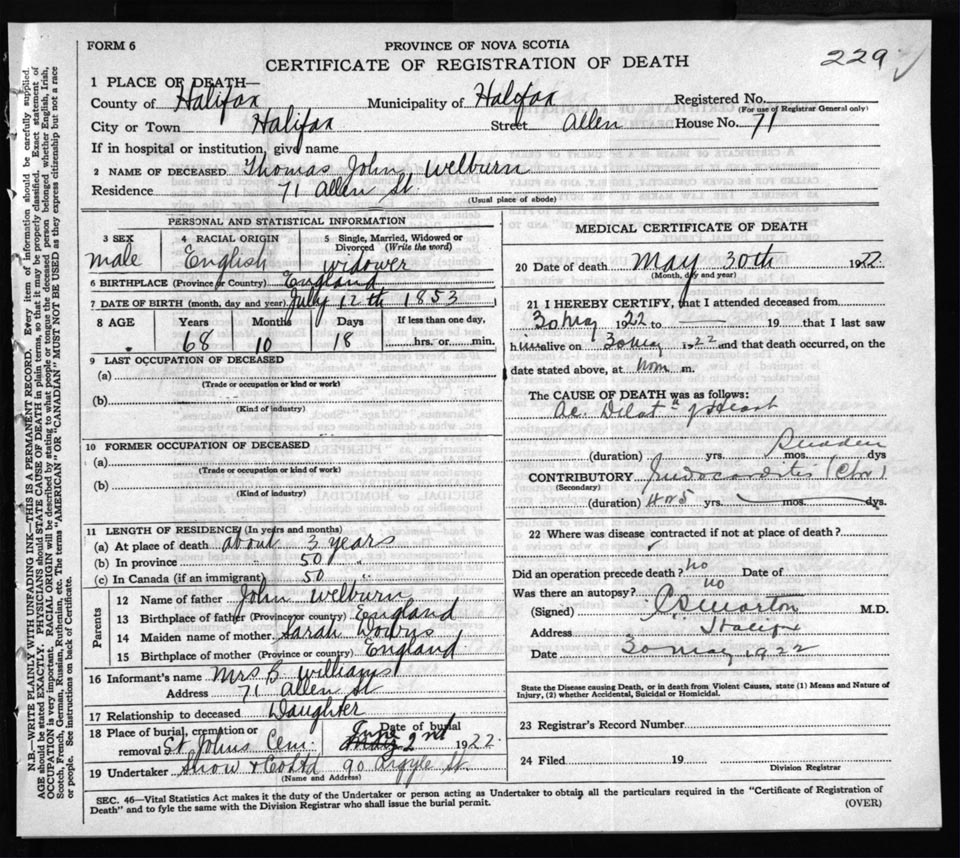 FORM 6
PROVINCE OF NOVA SCOTIA
CERTIFICATE OF REGISTRATION OF DEATH
229
1 PLACE OF DEATH—
County of Halifax Municipality of Halifax Registered No.
(For use of Registrar General only)
City or Town Halifax Street Allen House No. 71
If in hospital or institution, give name
2 NAME OF DECEASED Thomas John Welburn
Residence 71 Allen St.
(Usual place of abode)
PERSONAL AND STATISTICAL INFORMATION
3 SEX 4 RACIAL ORIGIN 5 Single, Married, Widowed or Divorced (Write the word)
male English widower
6 BIRTHPLACE (Province or Country) England
7 DATE OF BIRTH (month, day and year) July 12th 1853
8 AGE Years Months Days If less than one day,
68 10 18 hrs. or min.
9 LAST OCCUPATION OF DECEASED
(a)
(Trade or occupation or kind or work)
(b)
(Kind of industry)
10 FORMER OCCUPATION OF DECEASED
(a)
(Trade or occupation or kind or work)
(b)
(Kind of industry)
11 LENGTH OF RESIDENCE (In years and months)
(a) At place of death about 3 years
(b) In province 50 "
(c) In Canada (if an immigrant) 50 "
Parents
12 Name of father John Welburn
13 Birthplace of father (Province or country) England
14 Maiden name of mother Sarah
15 Birthplace of mother (Province or country) England
16 Informant's name Mrs B Williams
Address 71 Allen St
17 Relationship to deceased Daughter
18 Place of burial, cremation or Date of burial
removal St Johns Cem. June 2nd 1922.
19 Undertaker Snow & Co Ltd 90 Argyle St.
(Name and Address)
MEDICAL CERTIFICATE OF DEATH
20 Date of death May 30th 1922.
(Month, day and year)
21 I HEREBY CERTIFY, that I attended deceased from
30 May 1922 to 19 that I last saw
him alive on 30 May 1922 and that death occurred, on the
date stated above, at noon m.
The CAUSE OF DEATH was as follows:
Ac. Dilatn of Heart
Sudden
(duration) yrs. mos. dys
CONTRIBUTORY Endocarditis (Chr)
(Secondary)
(duration) yrs. mos. dys.
22 Where was disease contracted if not at place of death?
Did an operation precede death? no Date of
Was there an autopsy? no
(Signed) Morton M.D.
Address Halifax
Date 30 May 1922
State the Disease causing Death, or in death from Violent Causes, state (1) Means and Nature of
Injury, (2) whether Accidental, Suicidal or Homicidal.
23 Registrar's Record Number
24 Filed 19
Division Registrar
SEC. 46—Vital Statistics Act makes it the duty of the Undertaker or person acting as Undertaker to obtain all the particulars required in the "Certificate of Registration of
Death" and to fyle the same with the Division Registrar who shall issue the burial permit.
(OVER)
N.B.—WRITE PLAINLY WITH UNFADING INK—THIS IS A PERMANENT RECORD. Every item of information should be carefully supplied.
AGE should be stated EXACTLY. PHYSICIANS should STATE CAUSE OF DEATH in plain terms, so that it may be properly classified. Exact statement of
OCCUPATION is very important. RACIAL ORIGIN will be described by stating to what people or tongue the deceased person belonged, whether English, Irish,
Scotch, French, German, Russian, Ruthenian, etc. The terms "AMERICAN" OR "CANADIAN" MUST NOT BE USED as they express citizenship but not a race
or people. See instructions on back of Certificate.